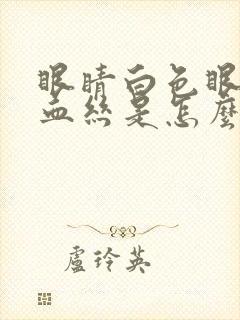 眼睛白色眼
血丝是怎麼
盧玲英